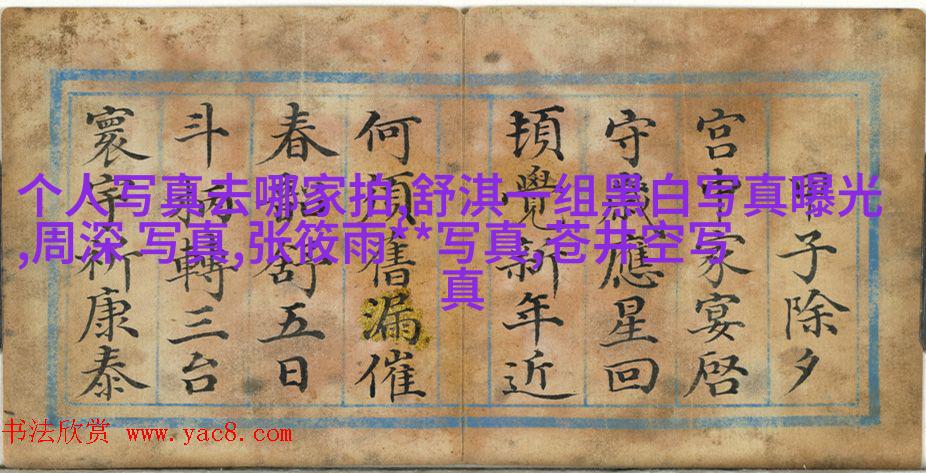 甲子除夕
宫中家宴啓
守歲應星回
頓覺新年近
何須舊漏催
春韶舒五日
斗柄轉三台
寰宇祈康泰
个人写真去哪家拍,舒淇一组黑白写真曝光
,周深 写真,张筱雨**写真,苍井空写
真
书法欣赏 www.yac8.com